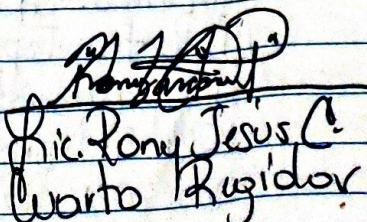 Lic. Rony Jesús C.
Cuarto Regidor